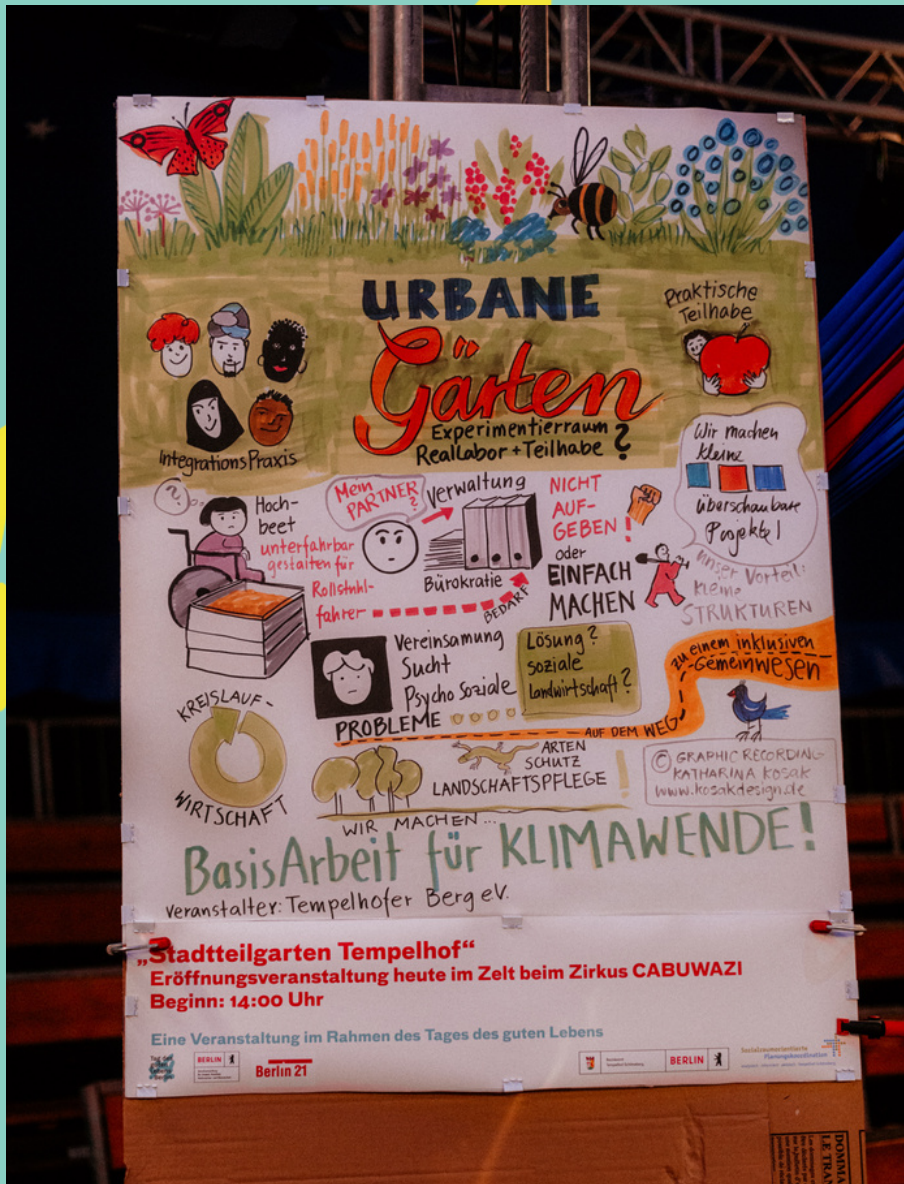 URBANE
Gärten
Experimentierraum
Reallabor + Teilhabe ?
Praktische
Teilhabe
IntegrationsPraxis
Wir machen
kleine
überschaubare
Projekte!
unser Vorteil:
kleine
STRUKTUREN
?
Hoch-
beet
unterfahrbar
gestalten für
Rollstuhl-
fahrer
Mein
PARTNER
?
Verwaltung
Bürokratie
BEDARF
NICHT
AUF-
GEBEN!
oder
EINFACH
MACHEN
Vereinsamung
Sucht
Psycho Soziale
PROBLEME
Lösung?
soziale
Landwirtschaft?
AUF DEM WEG
zu einem inklusiven
Gemeinwesen
KREISLAUF-
WIRTSCHAFT
ARTEN
SCHUTZ
LANDSCHAFTSPFLEGE !
© GRAPHIC RECORDING
KATHARINA KOSAK
www.kosakdesign.de
WIR MACHEN...
BasisArbeit für KLIMAWENDE!
Veranstalter: Tempelhofer Berg e.V.
„Stadtteilgarten Tempelhof“
Eröffnungsveranstaltung heute im Zelt beim Zirkus CABUWAZI
Beginn: 14:00 Uhr
Eine Veranstaltung im Rahmen des Tages des guten Lebens
BERLIN
Berlin 21
BERLIN
Sozialraumorientierte
Planungskoordination